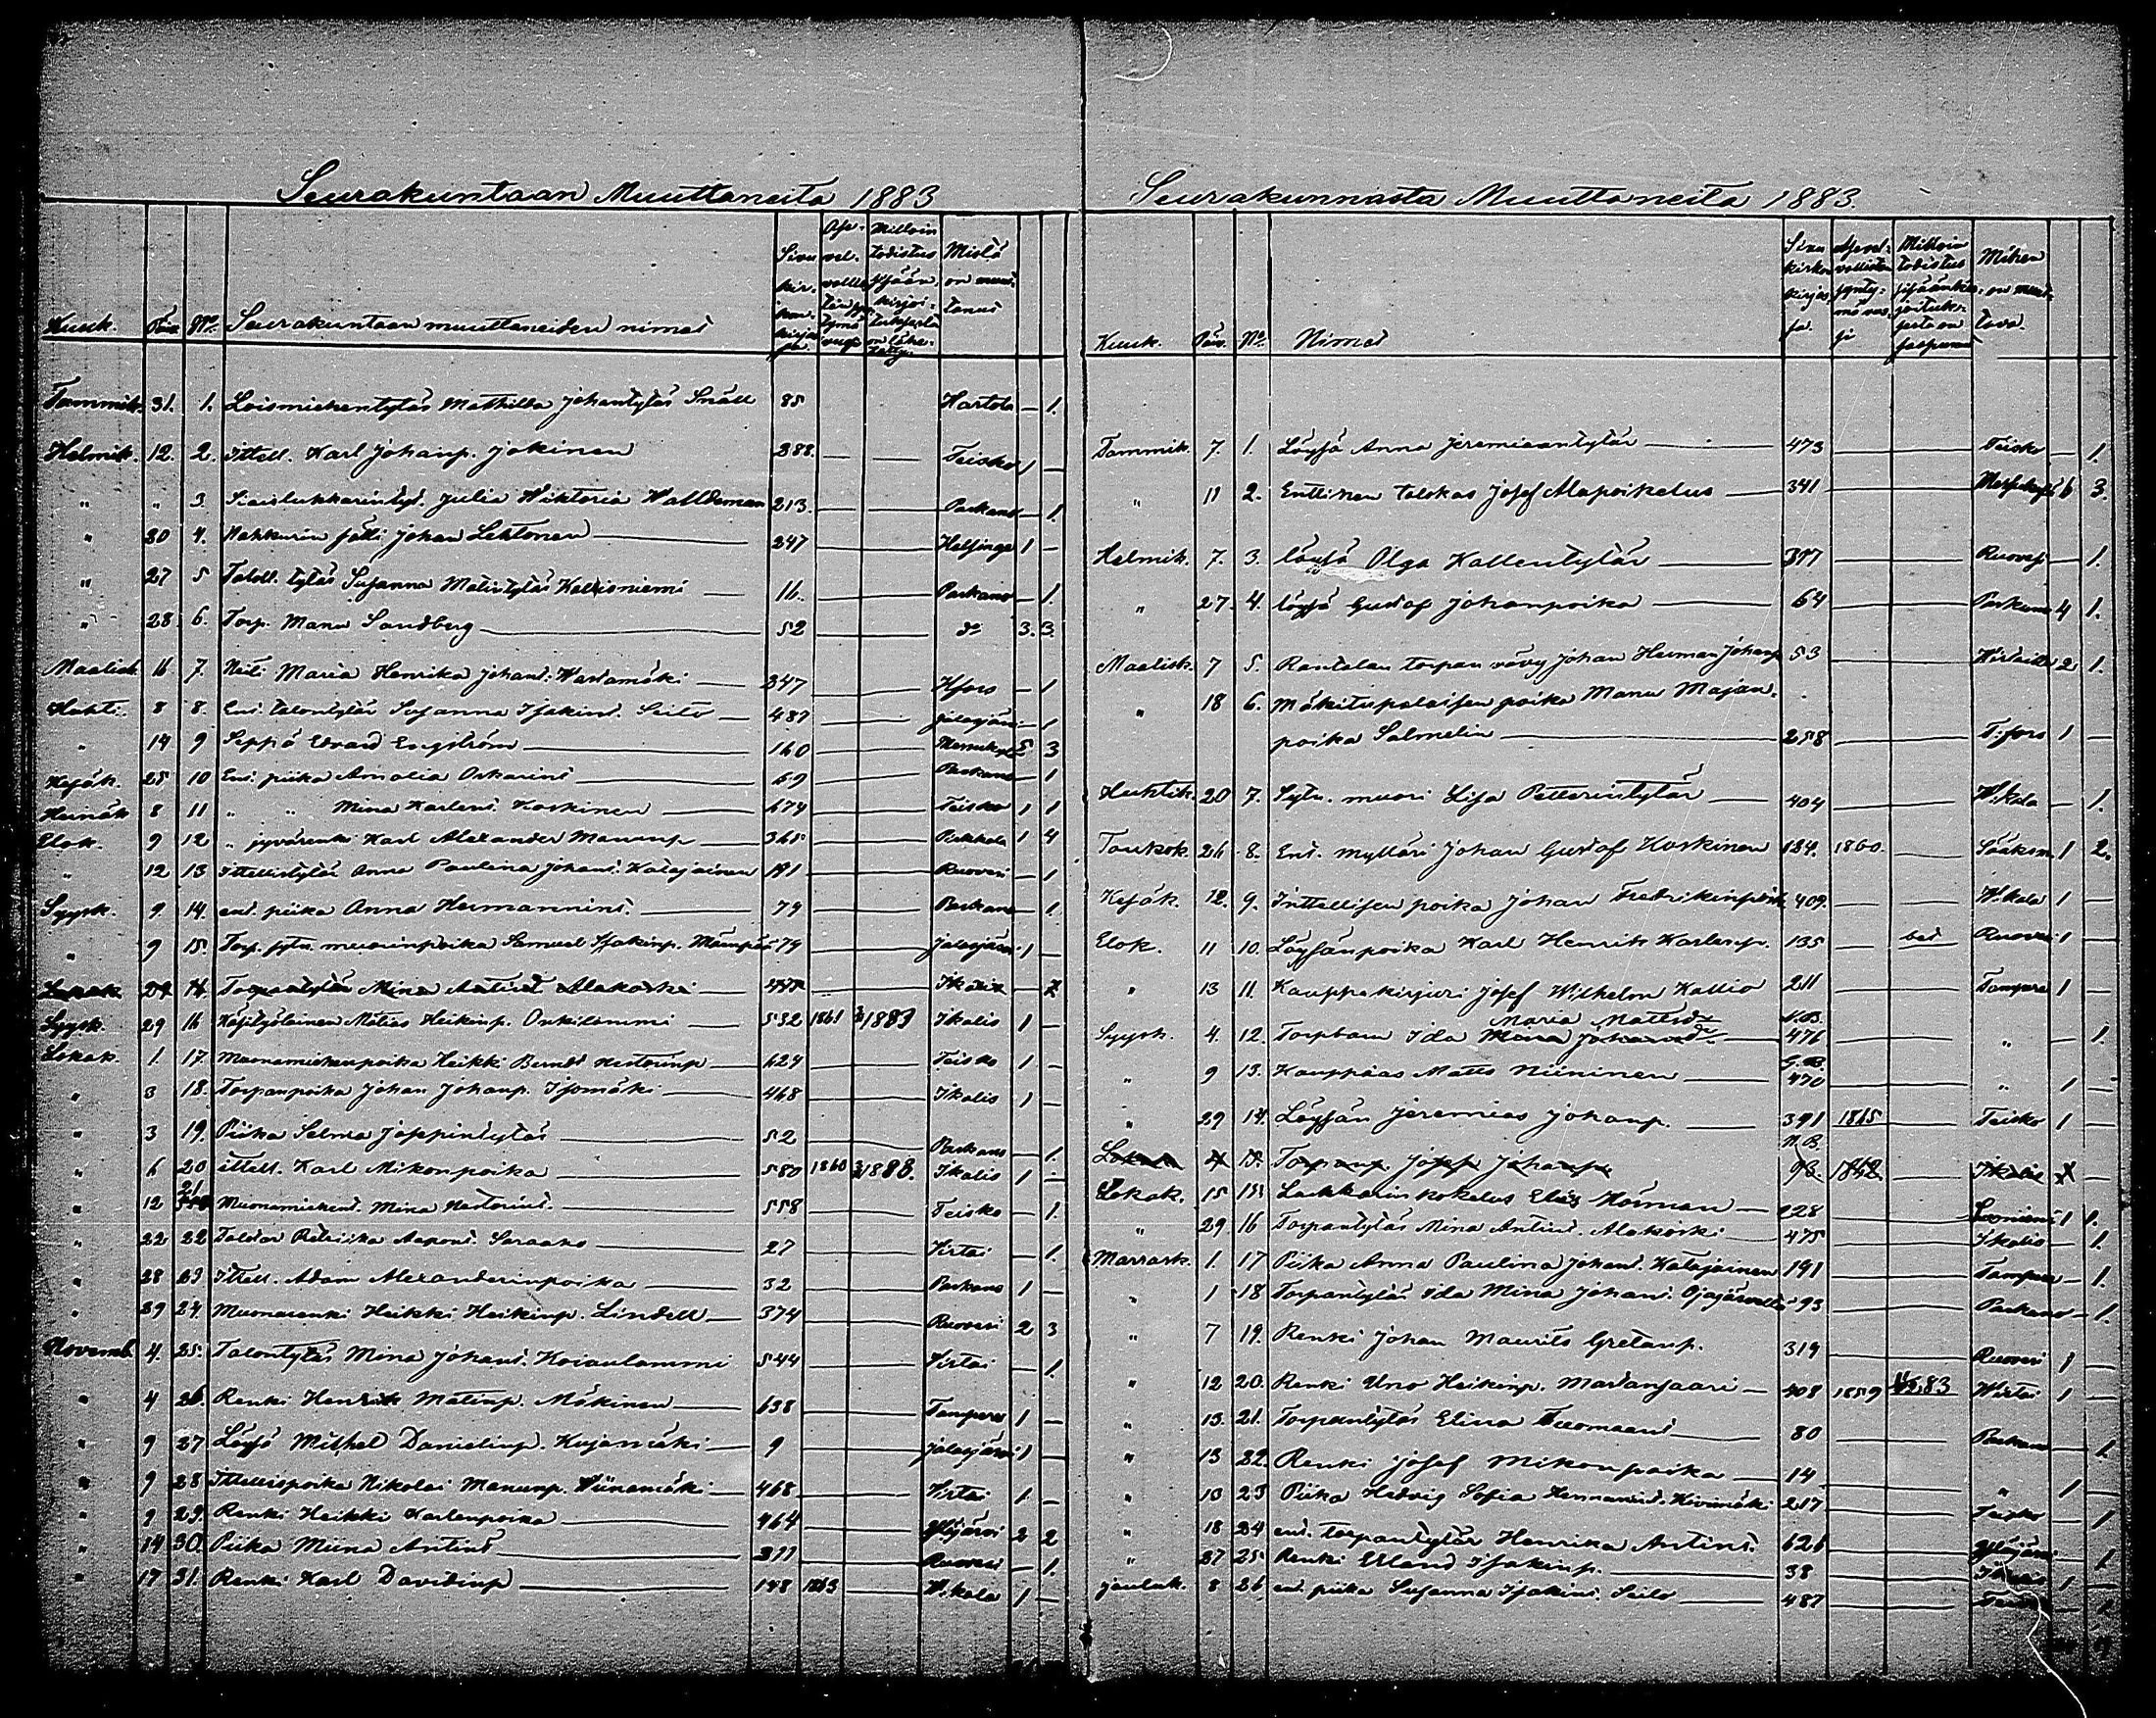 Seurakuntaan Muuttaneita 1883
Kuuk. Päiv. No. Seurakuntaan muuttaneiden nimet Sivu kirkonkirjassa Milloin todistus Mistä on muuttanut
Tammik. 31. 1. Loismiehentytär Mathilda Johantytär Snäll 85 Hartola — 1.
Helmik. 12. 2. Ittell. Karl Johanp. Jokinen 388 — — Teisko 1 —
" " 3. Siaislukkarintyt. Julia Wiktoria Walldeman 213. — — Parkano — 1.
" 20 4. Nahkurin sälli Johan Lehtonen 247 — — Helsinge 1 —
" 27 5 Taloll. tytär Susanna Matintytär Kallioniemi 16. — — Parkano — 1.
" 28. 6. Torp. Manu Sandberg 52 — — do 3. 3.
Maalisk. 16. 7. Neiti Maria Henrika Johant. Wastamäki 347 — — Hfors — 1
Huhti. 8 8. Ent. talontytär Susanna Isakint. Seilo 487 — — Jalasjärvi — 1
" 14 9 Seppä Edvard Engström 160 — — Messukylä 5 3
Kesäk. 25 10 Ent. piika Amalia Oskarint 69 — — Parkano — 1
Heinäk 8 11 " " Mina Karlent. Koskinen 674 — — Teisko 1 1
Elok. 9 12 " jyvärenki Karl Alexander Manunp 365 — — Pirkkala 1 4
" 12 13 Ittellistytär Anna Paulina Johant. Katajainen 191 — — Ruovesi — 1
Syysk. 9 14. ent. piika Anna Hermannint. 79 — — Parkano — 1.
" 9 15. Torp. sytn. muorinpoika Samuel Isakinp. Mäenpää 79 — — Jalasjärvi 1 —
Lokak. 29 16. Torpantytär Mina Antint. Alakoski 475 — — Ikalis — 1
Syysk. 29 16 Käsityöläinen Matias Heikinp. Onkilammi 532 1861 1883 Ikalis 1 —
Lokak. 1. 17. Muonamiehenpoika Heikki Berndt Nestorinp 624 — — Teisko 1 —
" 3 18. Torpanpoika Johan Johanp. Isomäki 468 — — Ikalis 1 —
" 3 19. Piika Selma Joppintytär 52 — — Parkano — 1.
" 6 20 ittell. Karl Mikonpoika 580 1860 1883. Ikalis 1 —
" 12 21 Muonamiehent. Mina Nestorint. 558 — — Teisko — 1.
" 22 22 Talolar Retriika Aapont. Saraaho 27 — — Virtai — 1.
" 28 23 Ittell. Adam Alexanderinpoika 32 — — Parkano 1 —
" 29 24. Muonarenki Heikki Heikinp. Lindell 374 — — Ruovesi 2 3
Novemb. 4. 25. Talontytär Mina Johant. Koivulammi 544 — — Virtai — 1.
" 4 26. Renki Henrik Matinp. Mäkinen 638 — — Tampere 1 —
" 9 27 Löysä Mikhel Danielinp. Kujamäki 9 — — Jalasjärvi 1 —
" 9 28 Ittellispoika Nikolai Manunp. Wiinamäki 468 — — Virtai 1 —
" 9 29. Renki Heikki Karlenpoika 464 — — Ylöjärvi 2 2
" 14 30. Piika Miina Antint 311 — — Ruovesi — 1.
" 17 31. Renki Karl Davidinp 148 1863 — W.kala 1 —
Seurakunnasta Muuttaneita 1883.
Kuuk. Päiv. No. Nimet Sivu kirkonkirjassa Milloin todistus Mihen on muuttava.
Tammik. 7. 1. Löysä Anna Jeremiaantytär 473 — — Teisko — 1.
" 11 2. Entinen talokas Josef Alapoikelus 341 — — Messukylä 6 3.
Helmik. 7. 3. löysä Olga Kallentytär 397 — — Ruovesi — 1.
" 27. 4. löysä Gustaf Johanpoika 64 — — Parkano 4 1.
Maalisk. 7 5. Rantalan torpan vävy Johan Herman Johanp 53 — — 2 1.
" 18 6. Mäkitupalaisen poika Manu Majan-
poika Salmelin 258 — — T:fors 1 —
Huhtik. 20 7. Sytn. muori Lisa Petterintytär 404 — — W.kala — 1.
Toukok. 26 8. Ent. mylläri Johan Gustaf Koskinen 184. 1860. — Sääksm. 1 2.
Kesäk. 12. 9. Inttellisen poika Johan Fredrikinpoik 409. — — W.kala 1 —
Elok. 11 10. Löysänpoika Karl Henrik Karlenp. 135 — Ruovesi 1 —
" 13 11. Kauppakirjuri Josef Wilhelm Kallio 211 — — Tampere 1 —
Maria Mattsdr N.B.
Syysk. 4. 12. Torpbarn Ida Maria Johansdr 476 — — " — 1.
" 9 13. Kauppias Matts Niininen 470 — — " 1 —
" 29 14. Löysän Jeremias Johanp. 391 1865 — Teisko 1 —
N.B.
Lokak. 15. Torpanp. Josef Johanp. 93. 1862 — Ikalis 1 —
Lokak. 15 15. Lukkarin kokelus Elis Hörman 228 — — 1 1.
" 29. 16 Torpantytär Mina Antint. Alakoski 475 — — Ikalis — 1.
Marrask. 1. 17 Piika Anna Paulina Johant. Katajainen 191 — — Tampere — 1.
" 1 18 Torpantytär Ida Mina Johant. Ojajärvellä 93 — — Parkano — 1.
" 7 19. Renki Johan Maurits Gretanp. 319 — — Ruovesi 1 —
" 12 20. Renki Uno Heikinp. Martansaari 408 1859 83 Wirtai 1 —
" 13. 21. Torpantytär Elina Tuomaant 80 — — Parkano — 1
" 13 22. Renki Josef Mikonpoika 14 — — " 1 —
" 13 23 Piika Hedvig Sofia Hermannint. Kivimäki 217 — — Teisko — 1
" 18 24 ent. torpantytär Henrika Antint. 621 — — Ylöjärvi — 1
" 27 25. Renki Erland Isakinp. 38 — — Ikalis 1 —
Jouluk. 8 26 ent. piika Susanna Isakint. Seilo 487 — — — 1